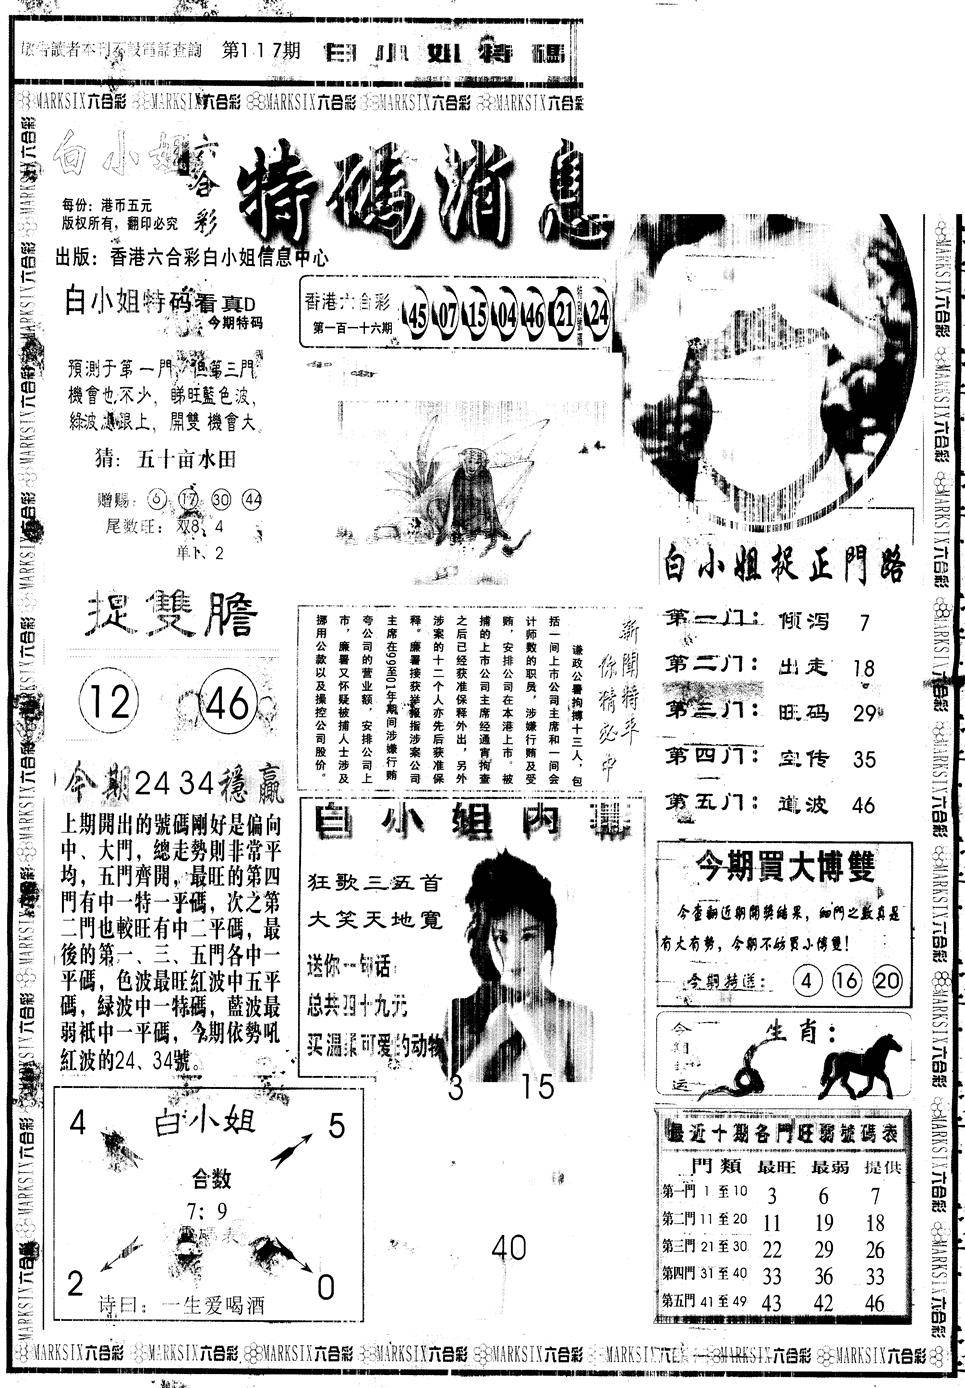 第117期 白小姐特碼
MARKSIX六合彩 MARKSIX六合彩 MARKSIX六合彩 MARKSIX六合彩 MARKSIX六合彩
白小姐 六合彩
特碼消息
每份：港币五元
版权所有，翻印必究
出版：香港六合彩白小姐信息中心
白小姐特码看真D
今期特码
預測于第一門，但第三門
機會也不少，睇旺藍色波，
綠波 跟上，開雙機會大。
猜：五十亩水田
赠赐：6 17 30 44
尾数旺：双8、4
单1、2
香港六合彩
第一百一十六期
45 07 15 04 46 21 24
捉雙膽
12 46
今期24 34穩贏
上期開出的號碼剛好是偏向
中、大門，總走勢則非常平
均，五門齊開，最旺的第四
門有中一特一平碼，次之第
二門也較旺有中二平碼，最
後的第一、三、五門各中一
平碼，色波最旺紅波中五平
碼，緑波中一特碼，藍波最
弱衹中一平碼，今期依勢吼
紅波的24、34號。
新聞特平
你猜必中
谦政公署拘搏十三人，包
括一间上市公司主席和一间会
计师数的职员，涉嫌行贿及受
贿，安排公司在本港上市。被
捕的上市公司主席经通宵拘查
之后已经获准保释外出，另外
涉案的十二个人亦先后获准保
释。廉署接获举报指涉案公司
主席在99至01年期间涉嫌行贿
夸公司的营业额，安排公司上
市，廉署又怀疑被捕人士涉及
挪用公款以及操控公司股价。
白小姐内
狂歌三五首
大笑天地寬
送你一句话：
总共四十九元
买温柔可爱的动物
3 15
40
白小姐捉正門路
第一门：倾泻 7
第二门：出走 18
第三门：旺码 29
第四门：宣传 35
第五门：道波 46
今期買大博雙
今查翻近期開獎结果，細門之數真是
有大有勢，今期不妨買小博雙！
今期特送：4 16 20
生肖：
最近十期各門旺弱號碼表
門類 最旺 最弱 提供
第一門 1 至 10 3 6 7
第二門 11 至 20 11 19 18
第三門 21 至 30 22 29 26
第四門 31 至 40 33 36 33
第五門 41 至 49 43 42 46
4 白小姐 5
合数
7；9
2 0
诗曰：一生爱喝酒
MARKSIX六合彩 MARKSIX六合彩 MARKSIX六合彩 MARKSIX六合彩 MARKSIX六合彩 MARKSIX六合彩 MARKSIX六合彩 MARKSIX六合彩